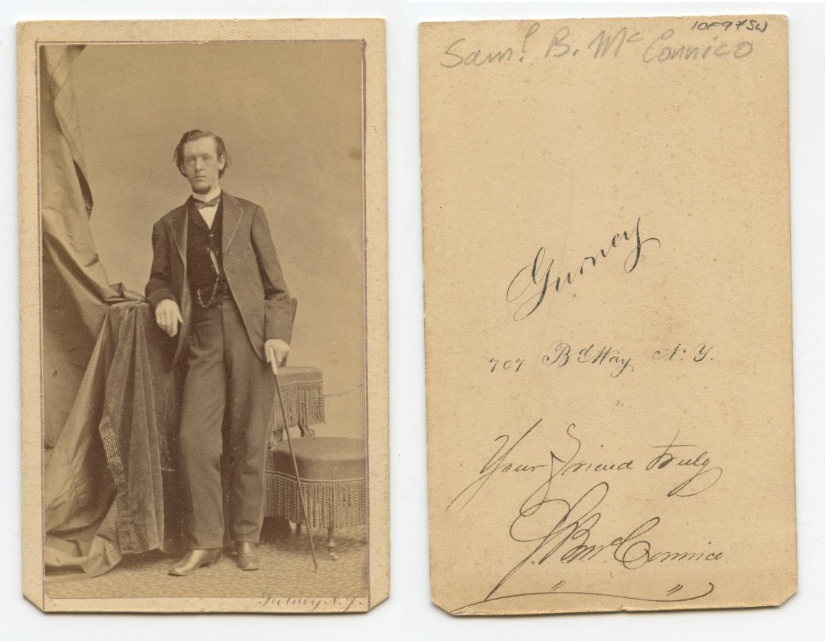 Gurney N.Y.
10F97SW
Sam! B. Mc Connico
Gurney
707 Bd Way N. Y.
Your friend truly
S. B. McConnico